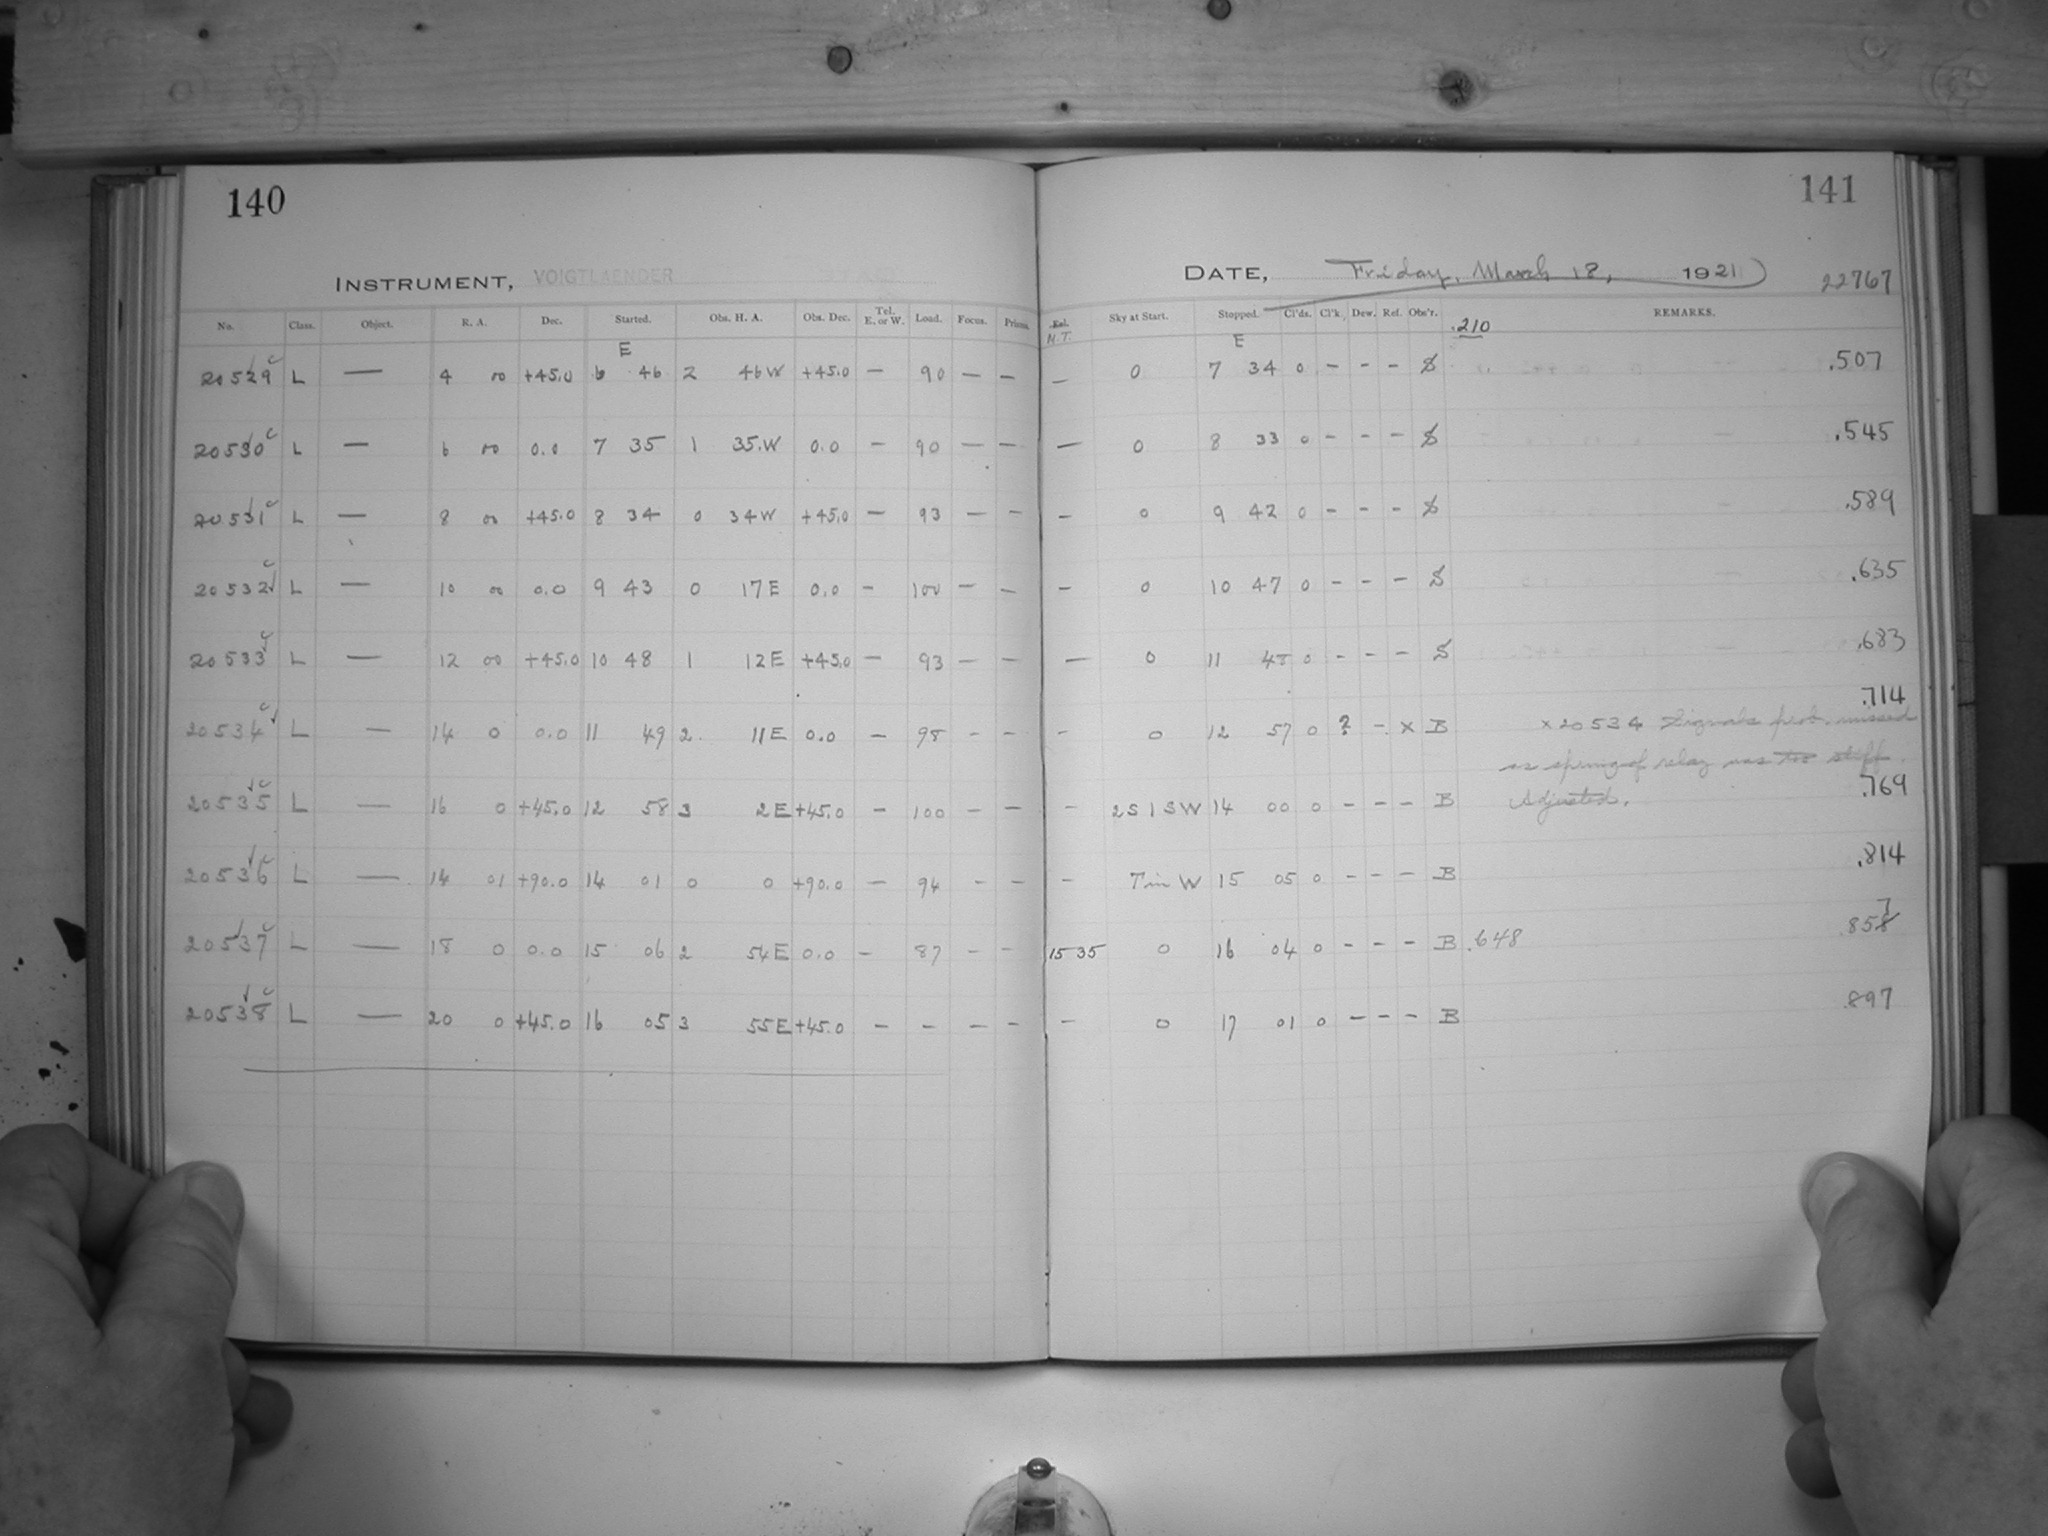 140
141
INSTRUMENT, VOIGTLAENDER
DATE, Friday, March 18, 1921 22767
No. Class. Object. R. A. Dec. Started. Obs. H. A. Obs. Dec. Tel. E. or W. Load. Focus. Prisms. M.T. Sky at Start. Stopped. Cl'ds. Cl'k. Dew. Ref. Obs'r. .210 REMARKS.
E E
20529 c L — 4 00 +45.0 6 46 2 46 W +45.0 — 90 — — — 0 7 34 0 - - - S .507
20530 c L — 6 00 0.0 7 35 1 35.W 0.0 — 90 — — — 0 8 33 0 - - - S .545
20531 c L — 8 00 +45.0 8 34 0 34 W +45.0 — 93 — — — 0 9 42 0 - - - S .589
20532 c L — 10 00 0.0 9 43 0 17 E 0.0 — 100 — — — 0 10 47 0 - - - S .635
20533 c L — 12 00 +45.0 10 48 1 12 E +45.0 — 93 — — — 0 11 48 0 - - - S .683
20534 c L — 14 0 0.0 11 49 2. 11 E 0.0 — 98 - - - 0 12 57 0 ? - x B .714
x 20534 Signals prob. missed
as spring of relay was too stiff.
Adjusted.
20535 c L — 16 0 +45.0 12 58 3 2 E +45.0 - 100 - - - 2 S 1 SW 14 00 0 - - - B .769
20536 c L — 14 01 +90.0 14 01 0 0 +90.0 — 94 - - - 7 in W 15 05 0 - - - B .814
20537 c L — 18 0 0.0 15 06 2 54 E 0.0 - 87 - - 15 35 0 16 04 0 - - - B .648 .858 7
20538 c L — 20 0 +45.0 16 05 3 55 E +45.0 - - - - - 0 17 01 0 - - - B .897